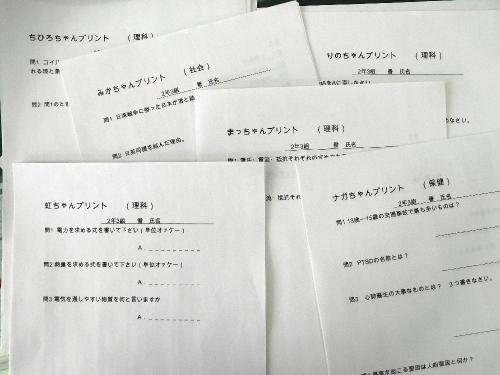 ちひろちゃんプリント （理科）
問1 コイル
れる現と象
問2 問1のとき
みかちゃんプリント （社会）
2年3組 番 氏名
問1 日清戦争に勝った日本が清と結
問2 日英同盟を結んだ理由。
りのちゃんプリント （理科）
2年3組 番 氏名
なさい。
まっちゃんプリント （理科）
2年3組 番 氏名
なさい。
虹ちゃんプリント （理科）
2年3組 番 氏名
問1 電力を求める式を書いて下さい（単位オッケー）
A．
問2 熱量を求める式を書いて下さい（単位オッケー）
A．
問3 電気を通しやすい物質を何と言いますか
A．
ナガちゃんプリント （保健）
2年3組 番 氏名
問1 13歳ー15歳の交通事故で最も多いものは？
問2 PTSDの名前とは？
問3 心肺蘇生の大事なものとは？ 3つ書きなさい。
が起こる要因は人的要因と何か？